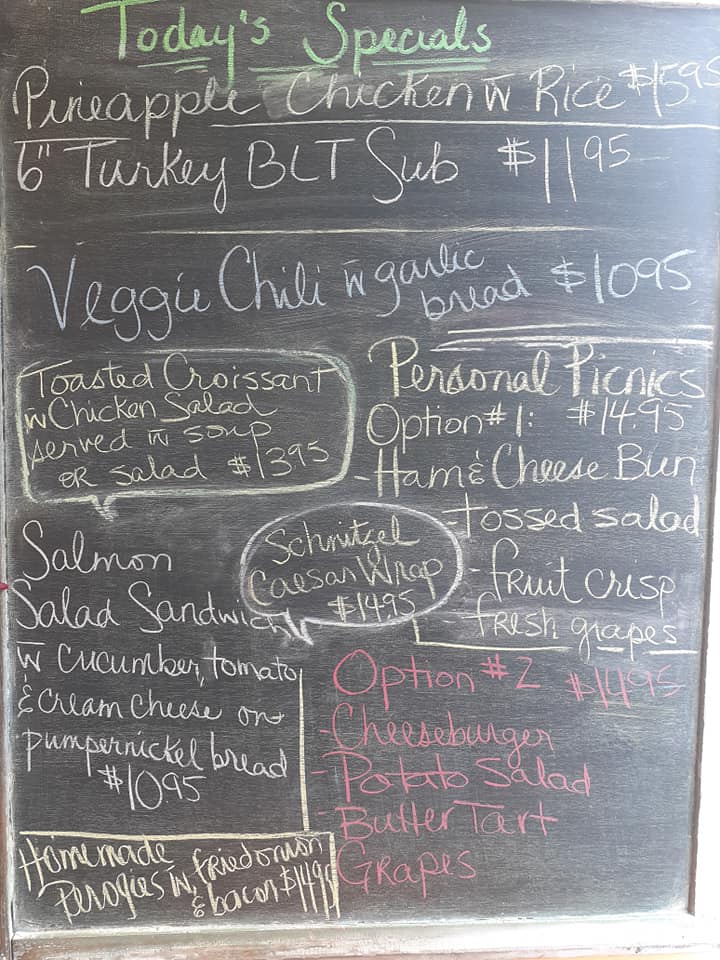 Today's Specials
Pineapple Chicken w̄ Rice $1595
6" Turkey BLT Sub $1195
Veggie Chili w̄ garlic
bread $1095
Toasted Croissant
w̄ Chicken Salad
served w̄ soup
or salad $1395
Personal Picnics
Option #1: $14.95
- Ham & Cheese Bun
- tossed salad
- fruit crisp
- fresh grapes
Schnitzel
Caesar Wrap
$14.95
Salmon
Salad Sandwich
w̄ cucumber, tomato
& cream cheese on
pumpernickel bread
$1095
Option #2 $14.95
- Cheeseburger
- Potato Salad
- Butter Tart
Grapes
Homemade
Perogies w̄ fried onion
& bacon $1495